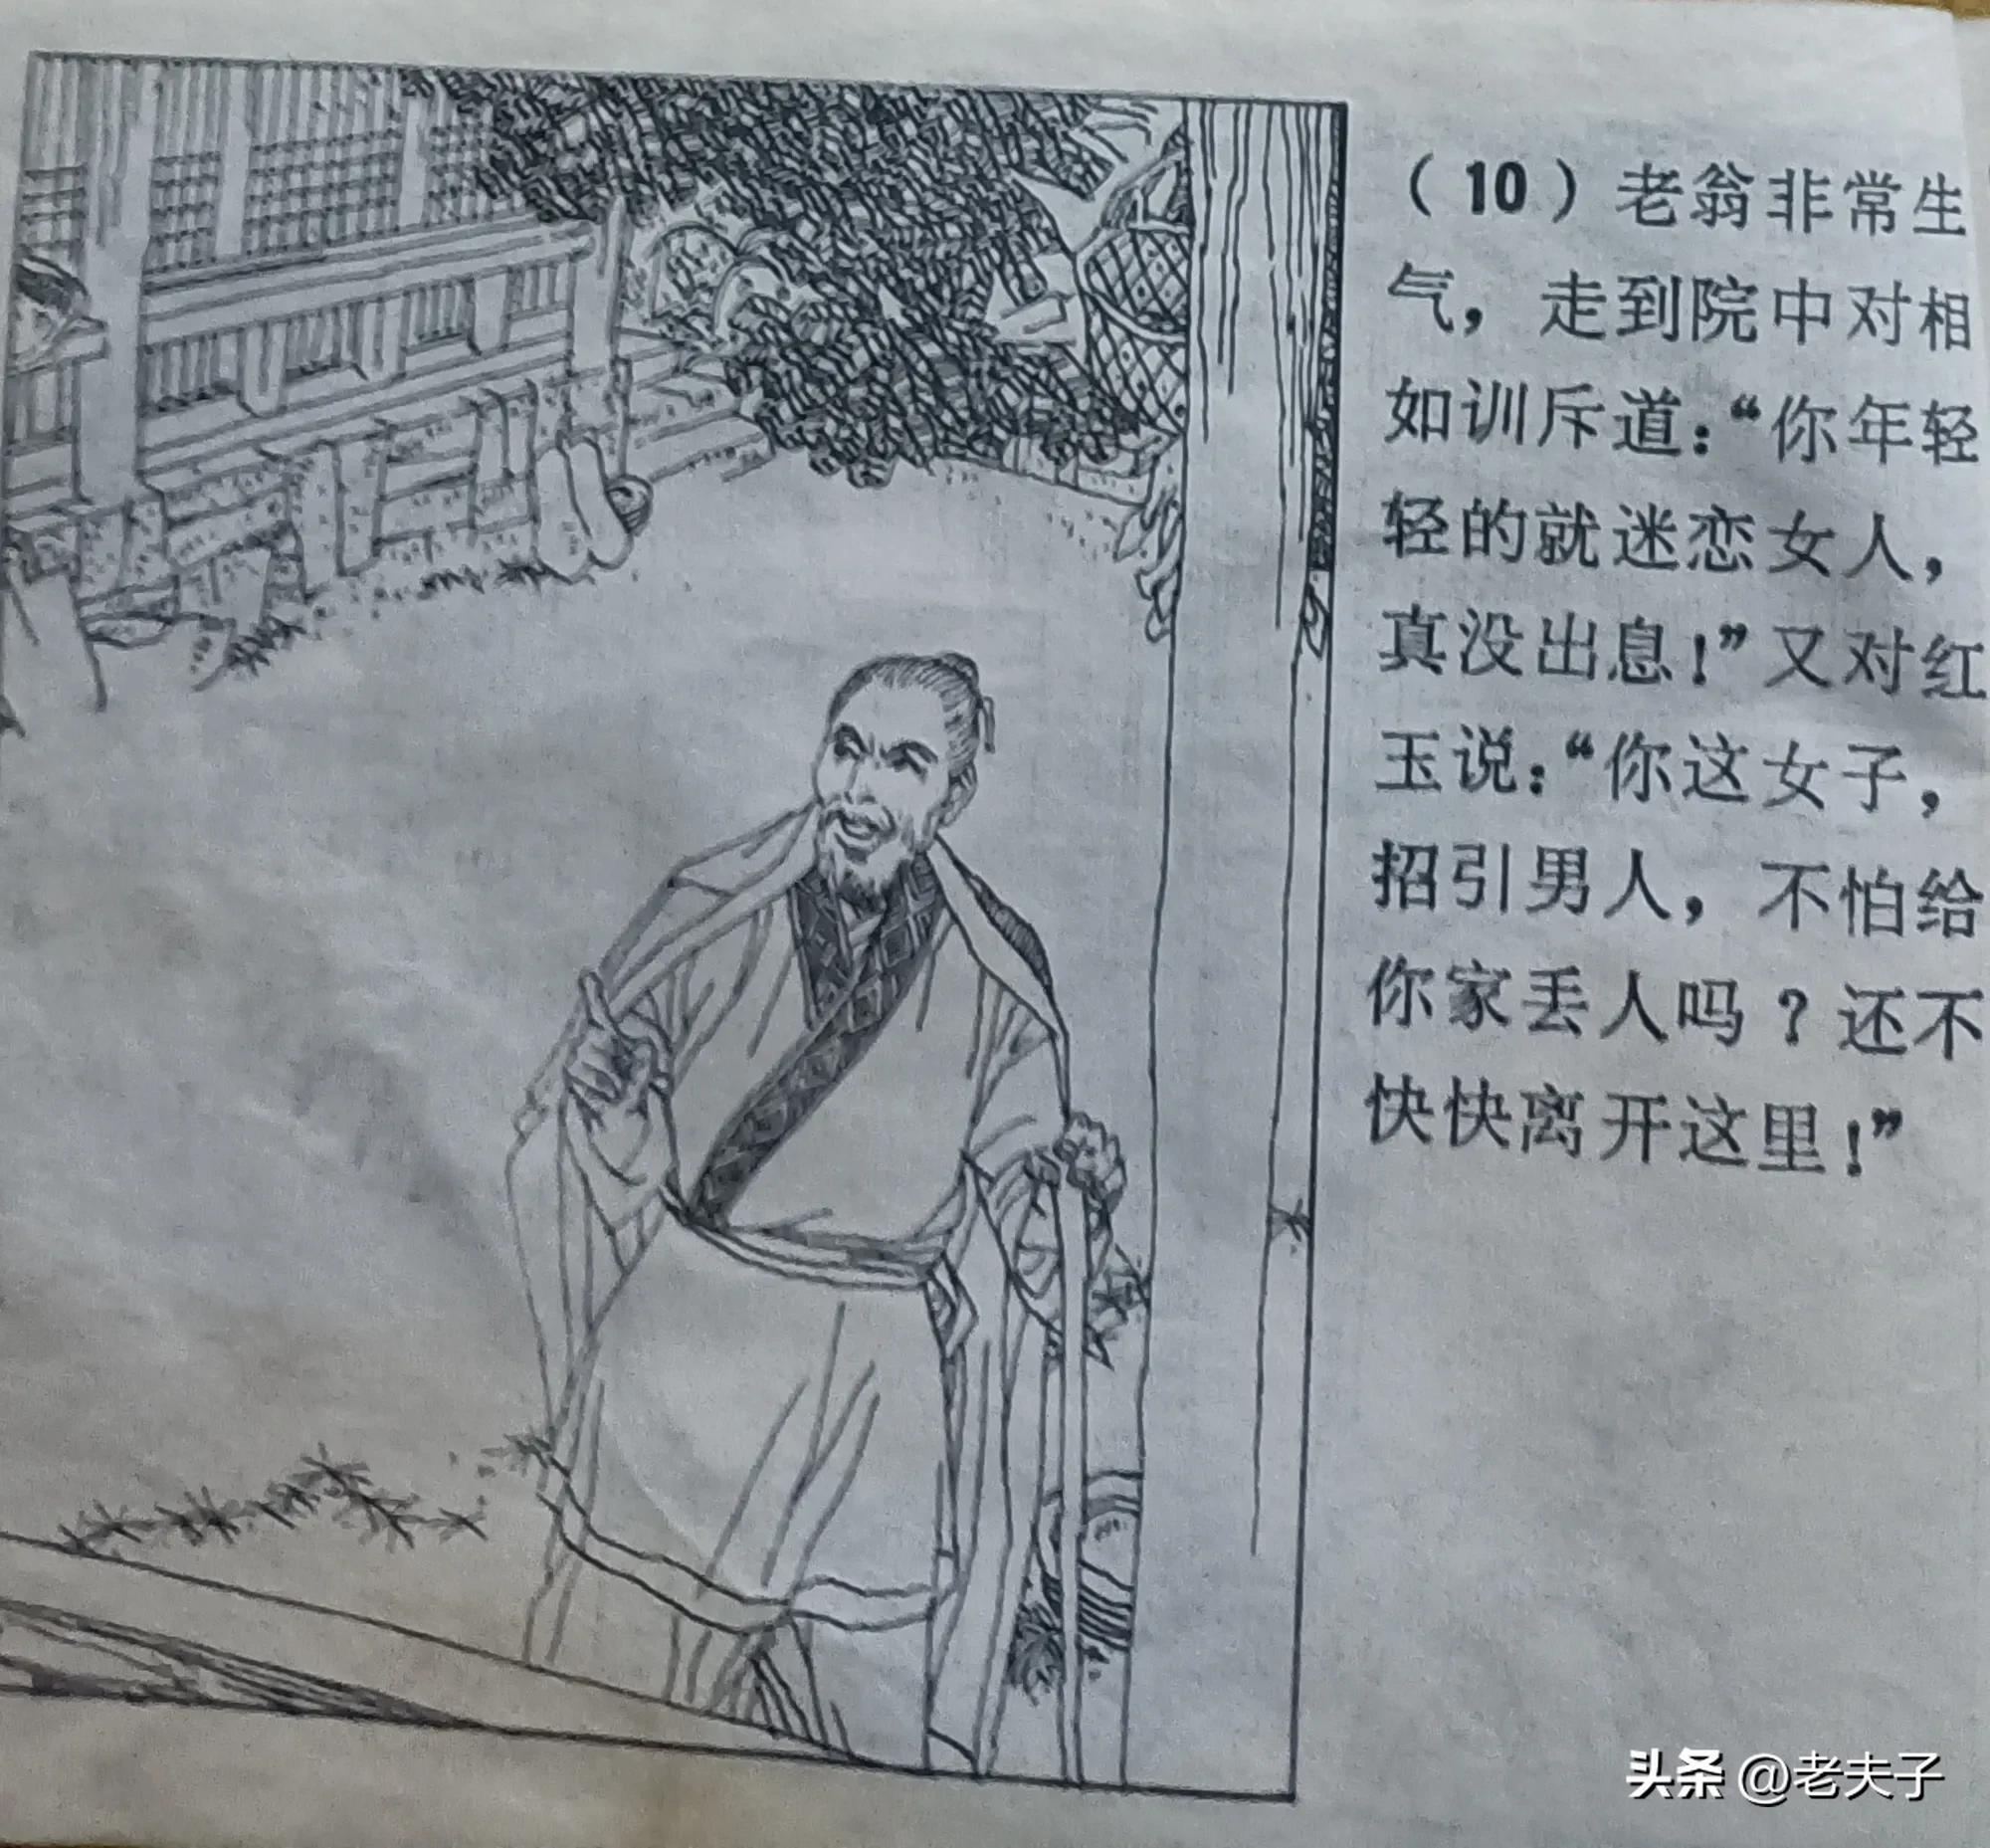 （10）老翁非常生
气，走到院中对相
如训斥道：“你年轻
轻的就迷恋女人，
真没出息！”又对红
玉说：“你这女子，
招引男人，不怕给
你家丢人吗？还不
快快离开这里！”
头条 @老夫子